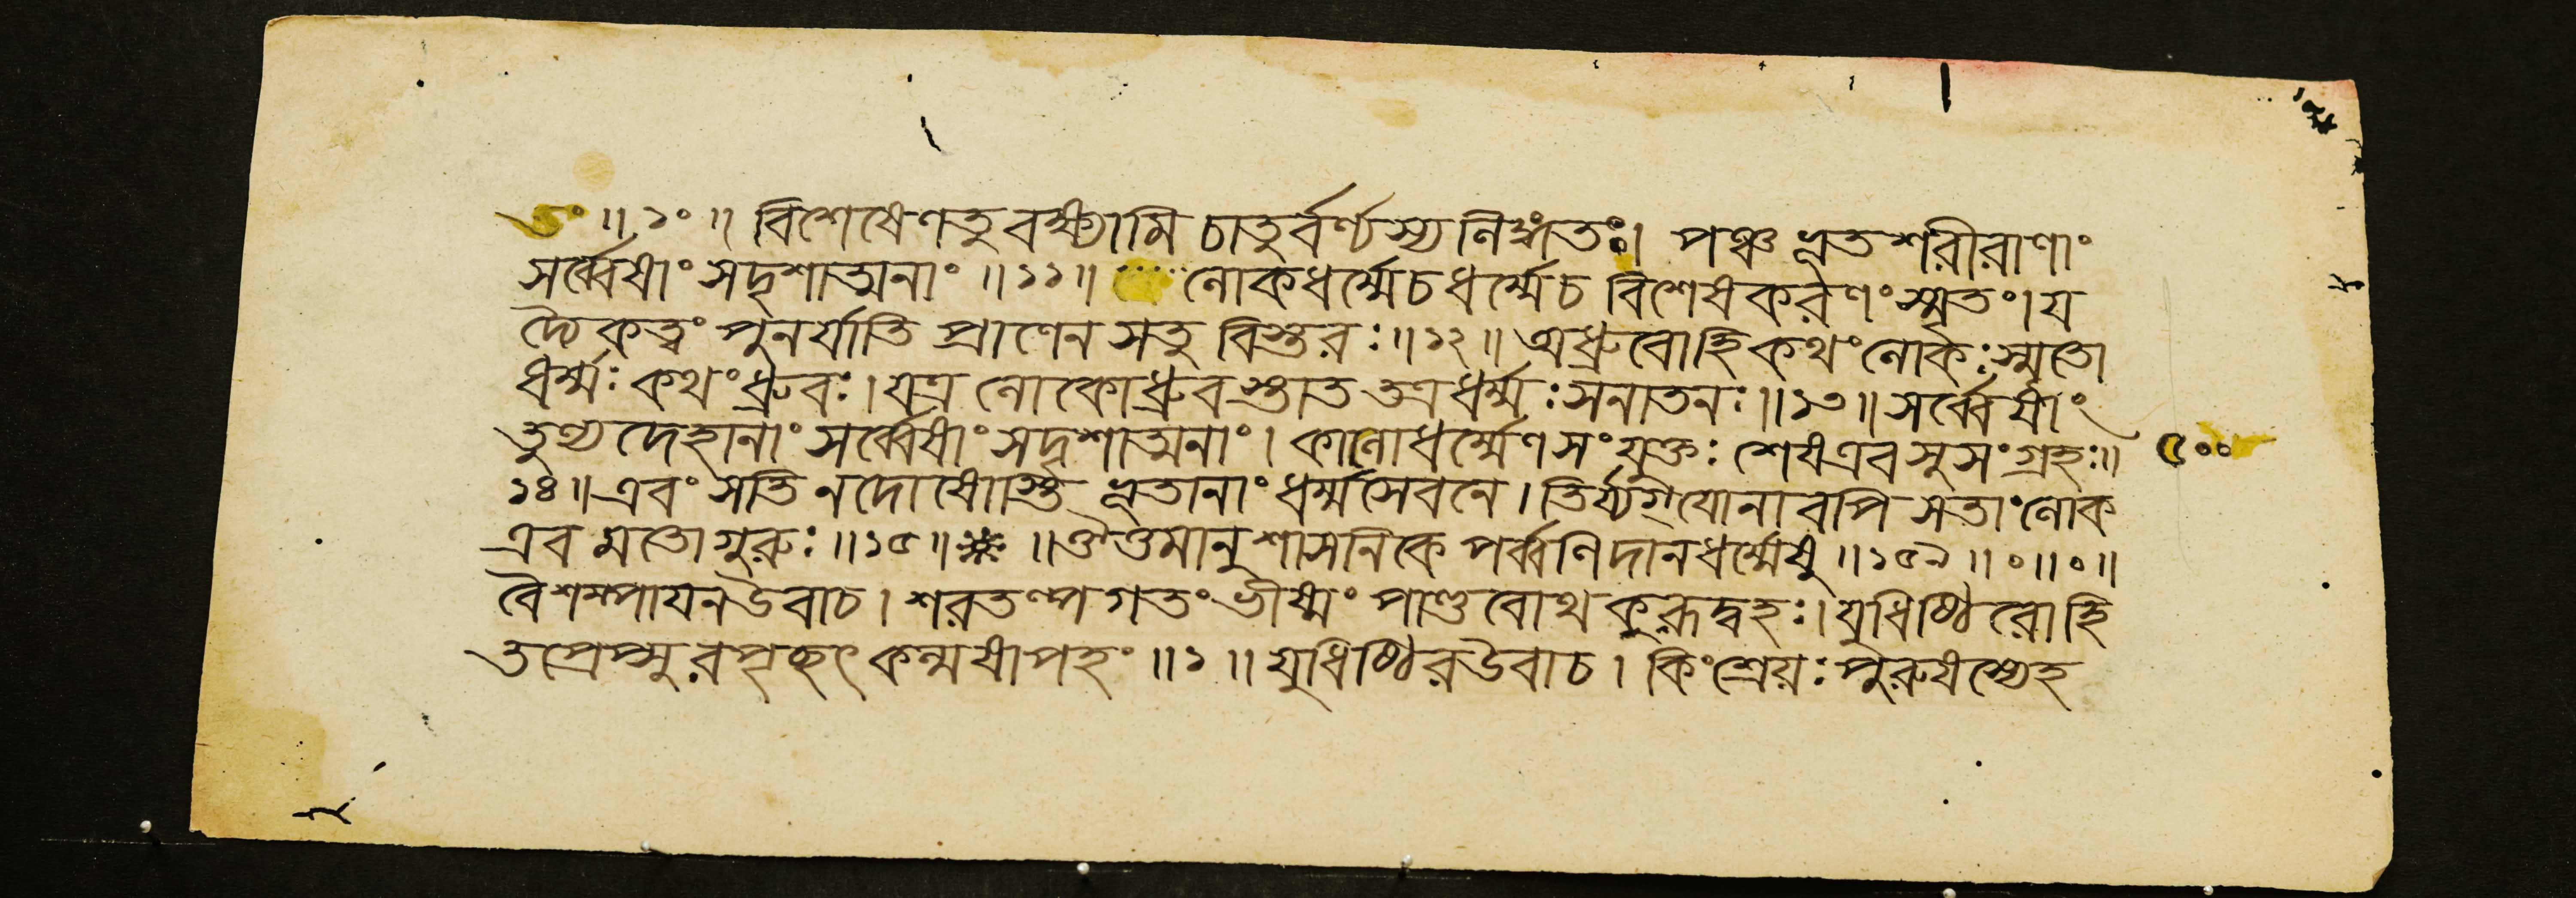 তং ॥ ১০ ॥ বিশেষেণতু বক্ষ্যামি চাতুর্বর্ণ্যস্য লিঙ্গতঃ। পঞ্চ ভূত শরীরাণাং
সর্ব্বেষাং সদৃশাত্মনাং ॥ ১১ ॥ লোকধর্ম্মেচধর্ম্মেচ বিশেষকরণংস্মৃতং। য
দৈকত্বং পুনর্যাতি প্রাণেন সতু বিস্তরঃ ॥ ১২ ॥ অধ্রুবোহি কথংলোকঃস্মৃতো
ধর্ম্মঃ কথংধ্রুবঃ। যত্র লোকোধ্রুবস্তাত তত্রধর্ম্মঃ সনাতনঃ ॥ ১৩ ॥ সর্ব্বেষাং
তুল্যদেহানাং সর্ব্বেষাং সদৃশাত্মনাং। কালোধর্ম্মেণসংযুক্তঃ শেষএব সুসংগ্রহঃ॥ ৫০০
১৪ ॥ এবং সতি নদোষোস্তি ভূতানাং ধর্ম্মসেবনে। তির্য্যগ্যোনাবপি সতাংলোক
এব মতোগুরুঃ ॥ ১৫ ॥ ❋ ॥ ঔত্তমানুশাসনিকে পর্ব্বণিদানধর্ম্মেষু ॥ ১৫৯ ॥ ০ ॥ ০ ॥
বৈশম্পায়নউবাচ। শরতল্পগতংভীষ্মং পাণ্ডবোথ কুরূদ্বহঃ। যুধিষ্ঠিরোহি
তপ্রেপ্সুরপৃচ্ছৎ কল্মষাপহং ॥ ১ ॥ যুধিষ্ঠিরউবাচ। কিংশ্রেয়ঃ পুরুষস্যেহ